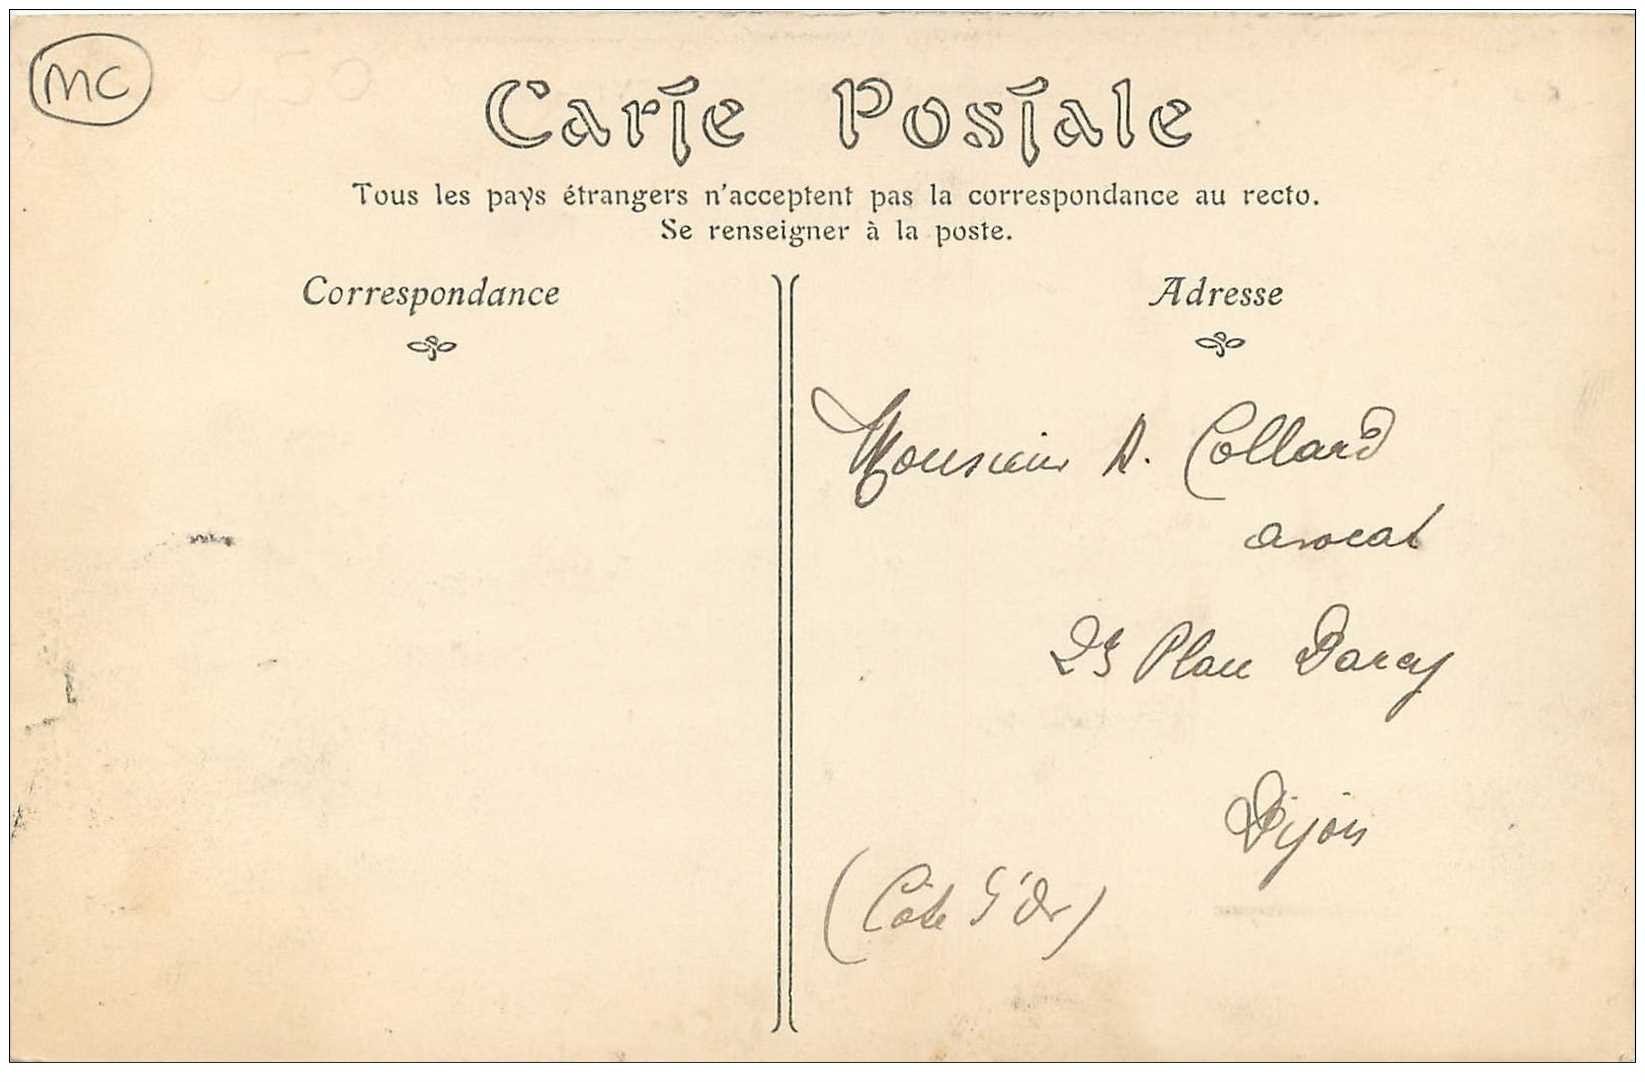 MC
Carte Postale
Tous les pays étrangers n'acceptent pas la correspondance au recto.
Se renseigner à la poste.
Correspondance
Adresse
Monsieur A. Collard
avocat
23 Place Darcy
Dijon
(Côte d'Or)